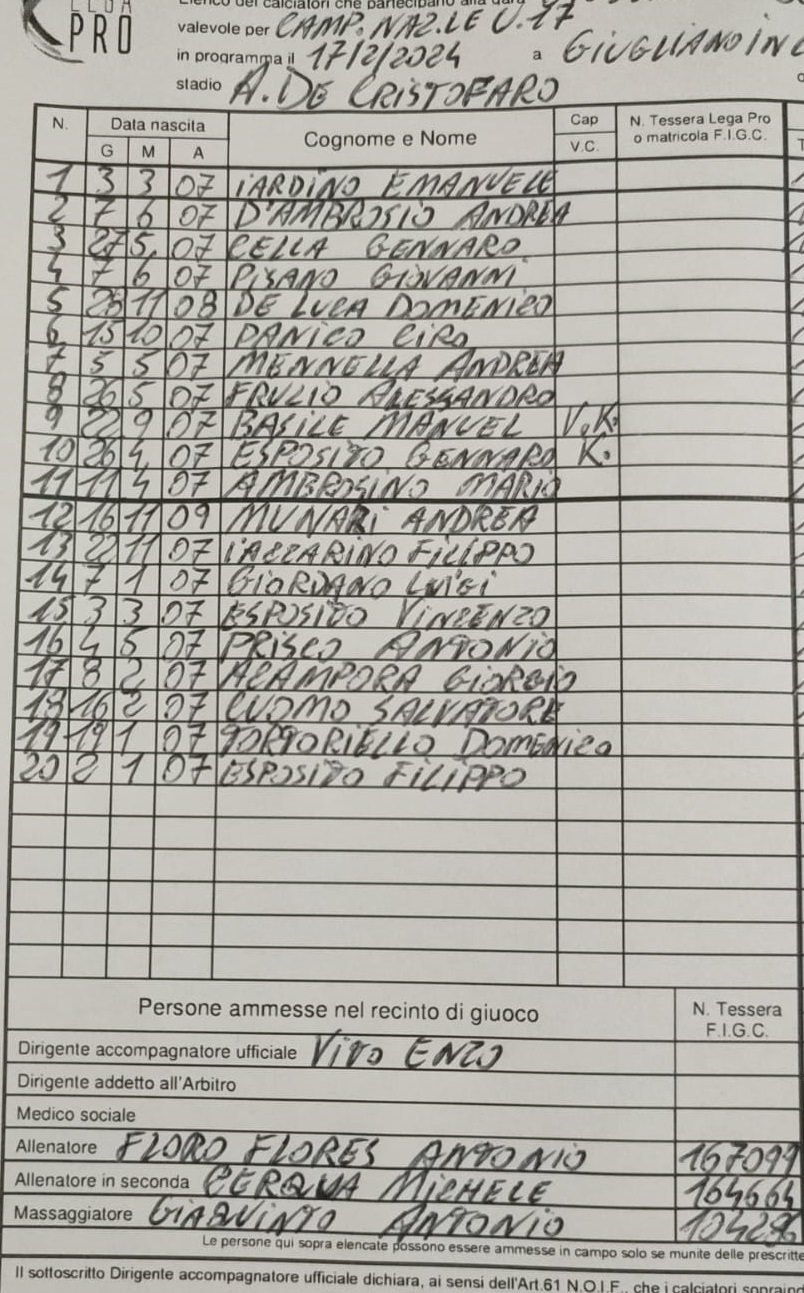 Elenco dei calciatori che partecipano alla gara
PRO
valevole per CAMP. NAZ.LE U.17
in programma il 17/2/2024 a GIUGLIANO IN
stadio A. DE CRISTOFARO
N. Data nascita Cognome e Nome Cap N. Tessera Lega Pro
G M A V.C. o matricola F.I.G.C.
1 3 3 07 IARDINO EMANUELE
2 7 6 07 D'AMBROSIO ANDREA
3 27 5 07 CELLA GENNARO
4 7 6 07 PISANO GIOVANNI
5 11 08 DE LUCA DOMENICO
6 15 10 07 PANICO CIRO
7 5 5 07 MENNELLA ANDREA
8 26 5 07 FRULIO ALESSANDRO
9 22 9 07 BASILE MANUEL V.K.
10 26 4 07 ESPOSITO GENNARO K.
11 11 4 07 AMBROSINO MARIO
12 16 11 09 MUNARI ANDREA
13 22 11 07 IAZZARINO FILIPPO
14 7 1 07 GIORDANO LUIGI
15 3 3 07 ESPOSITO VINCENZO
16 4 5 07 PRISCO ANTONIO
17 8 2 07 ACAMPORA GIORGIO
18 16 2 07 CUOMO SALVATORE
19 19 1 07 TORTORIELLO DOMENICO
20 2 1 07 ESPOSITO FILIPPO
Persone ammesse nel recinto di giuoco N. Tessera
F.I.G.C.
Dirigente accompagnatore ufficiale VITO ENZO
Dirigente addetto all'Arbitro
Medico sociale
Allenatore FLORO FLORES ANTONIO 167099
Allenatore in seconda CERQUA MICHELE 164664
Massaggiatore GIAQUINTO ANTONIO
Le persone qui sopra elencate possono essere ammesse in campo solo se munite delle prescritte
Il sottoscritto Dirigente accompagnatore ufficiale dichiara, ai sensi dell'Art.61 N.O.I.F., che i calciatori